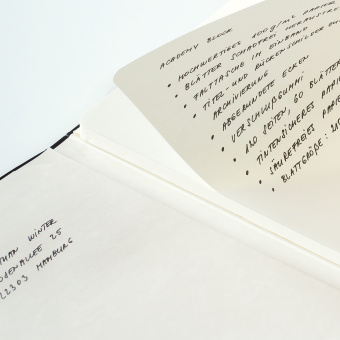 ACADEMY BLOCK
• HOCHWERTIGES 100g/m² PAPIER
• BLÄTTER SCHADFREI HERAUSTRE
• FALTTASCHE IM EINBAND
• TITEL- UND RÜCKENSCHILDER ZUR
ARCHIVIERUNG
• ABGERUNDETE ECKEN
• VERSCHLUßGUMMI
• 120 SEITEN, 60 BLÄTTER
• TINTENSICHERES PAPIE
• SÄUREFREIES PAPIE
• BLATTGRÖßE: 210
THAN WINTER
OSENALLEE 25
22303 HAMBURG